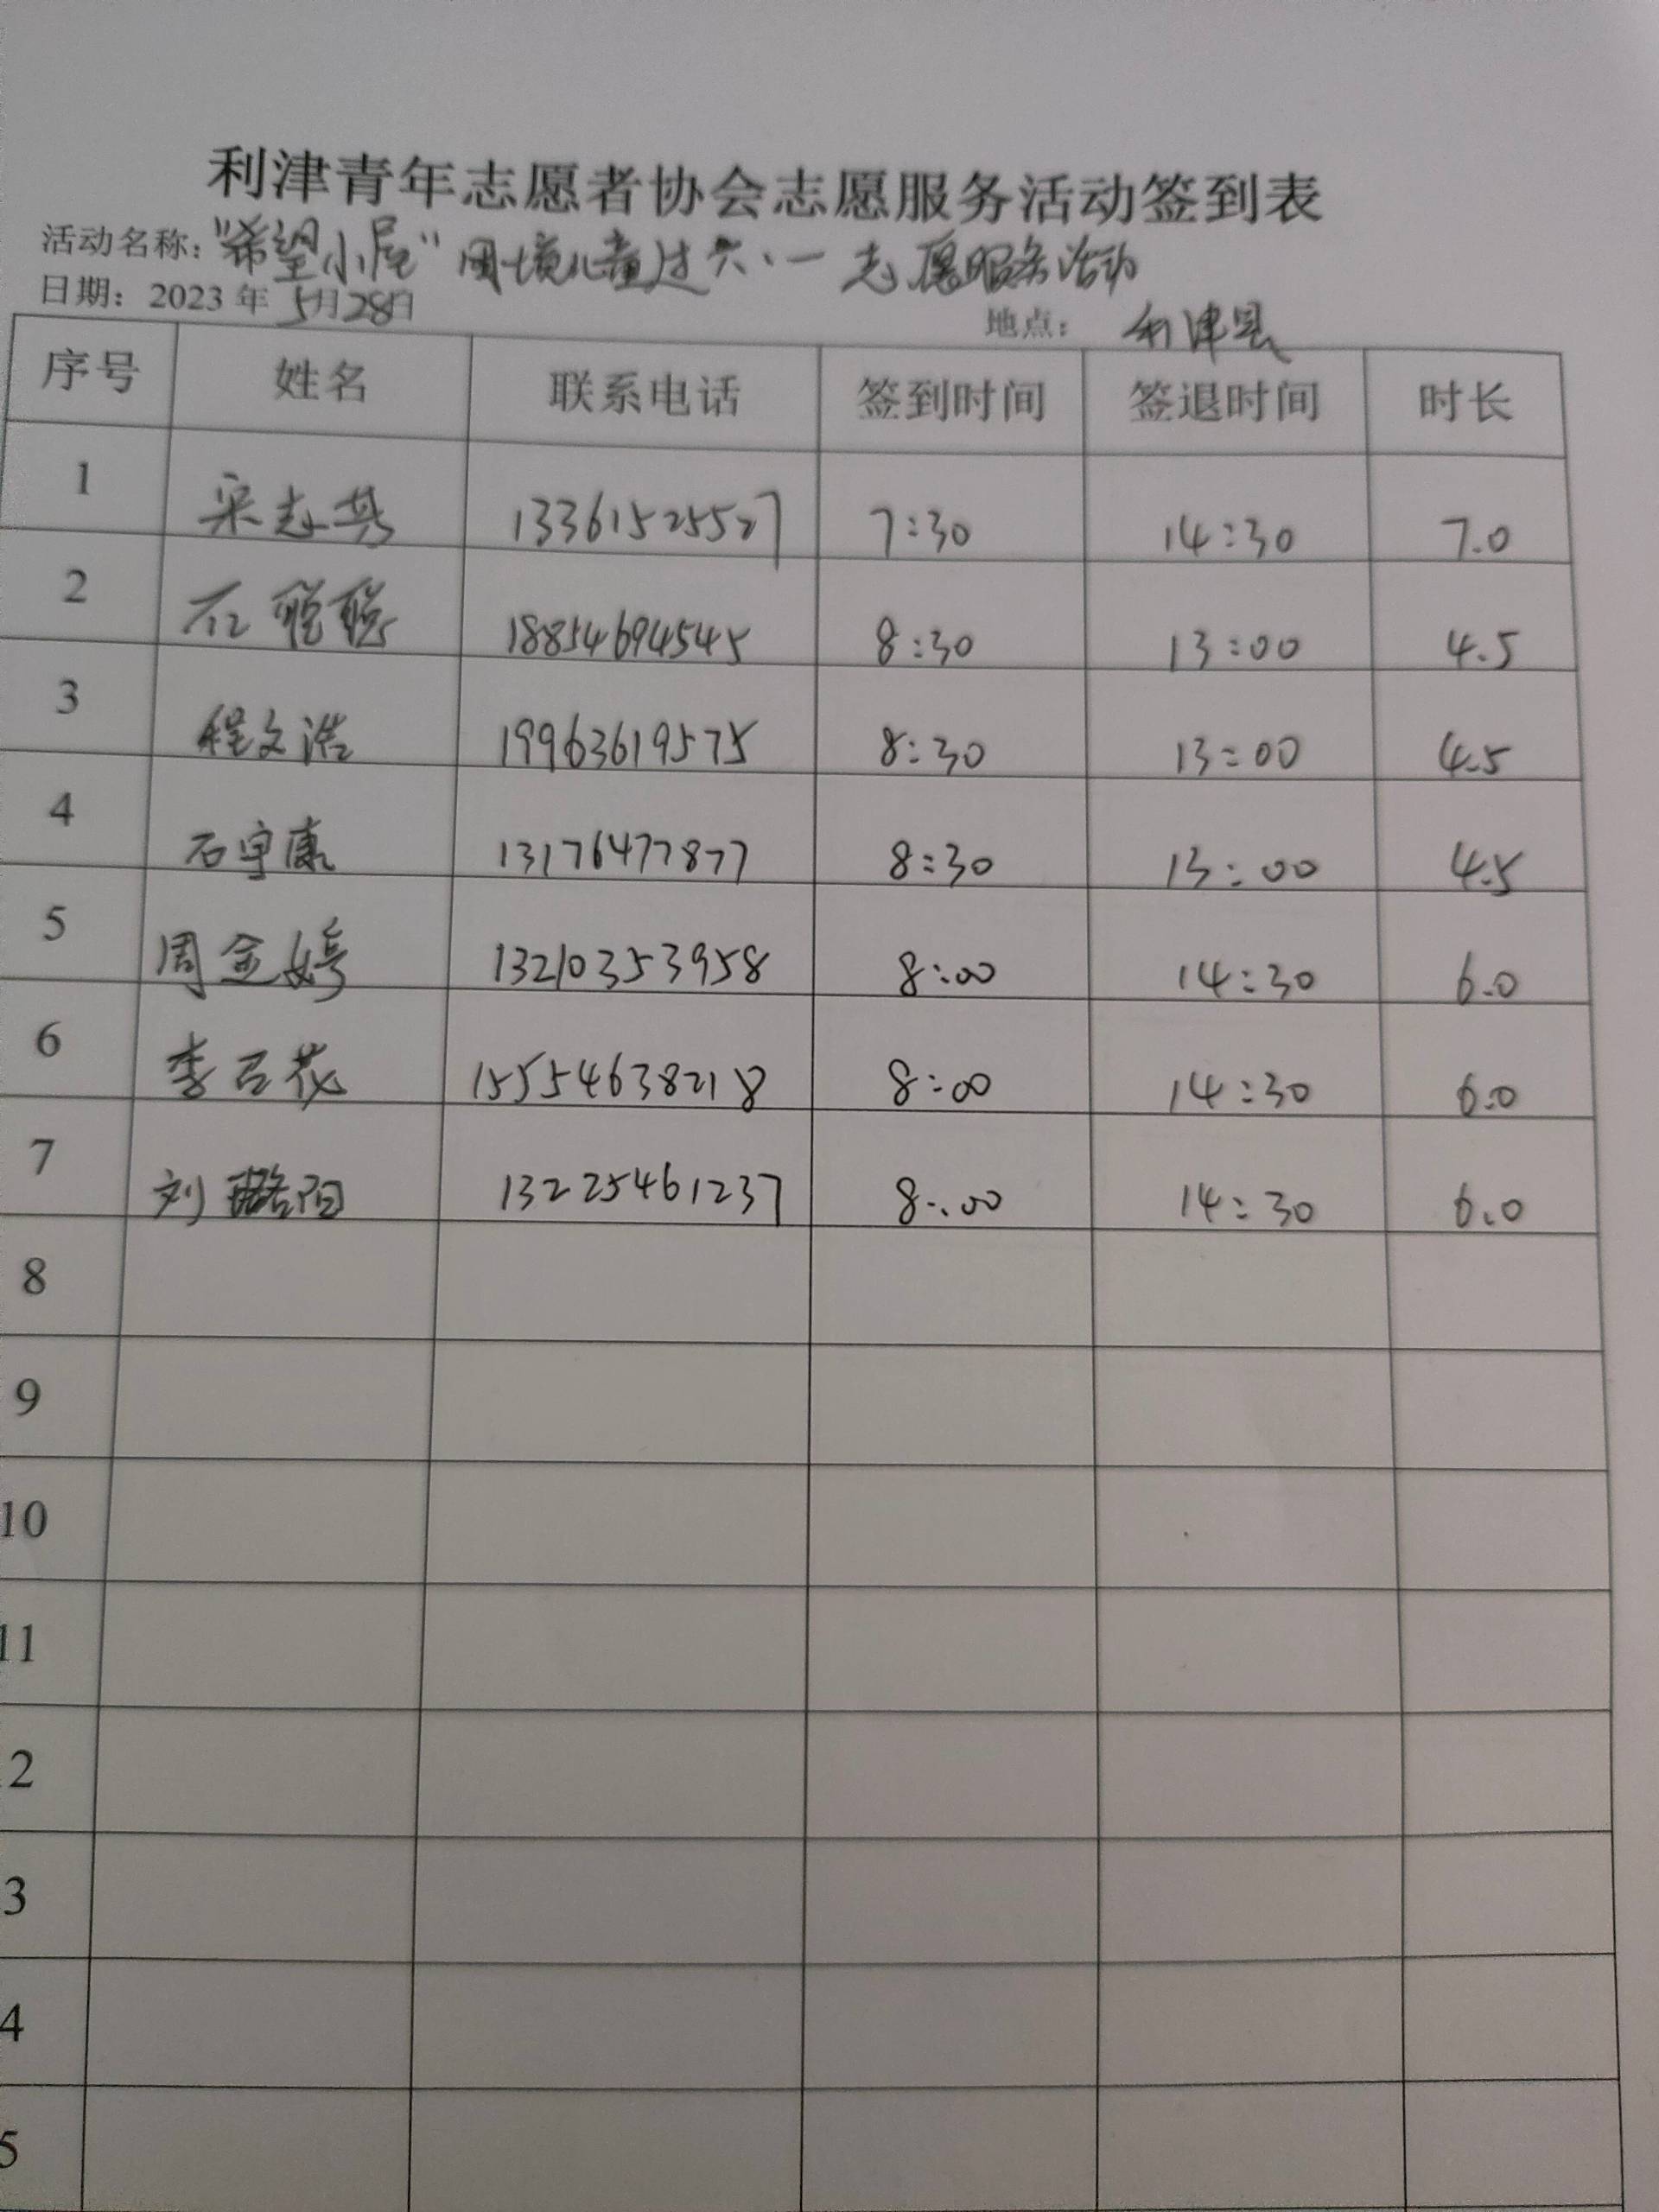 利津青年志愿者协会志愿服务活动签到表
活动名称：“希望小屋”困境儿童过六、一志愿服务活动
日期：2023年5月28日 地点：利津县
序号 姓名 联系电话 签到时间 签退时间 时长
1 13361525527 7:30 14:30 7.0
2 石聪聪 18854694545 8:30 13:00 4.5
3 程文浩 19963619575 8:30 13:00 4.5
4 石宇康 13176477877 8:30 13:00 4.5
5 周金婷 13210353958 8:00 14:30 6.0
6 李百花 15554638218 8:00 14:30 6.0
7 刘璐阳 13225461237 8:00 14:30 6.0
8
9
10
11
2
3
4
5